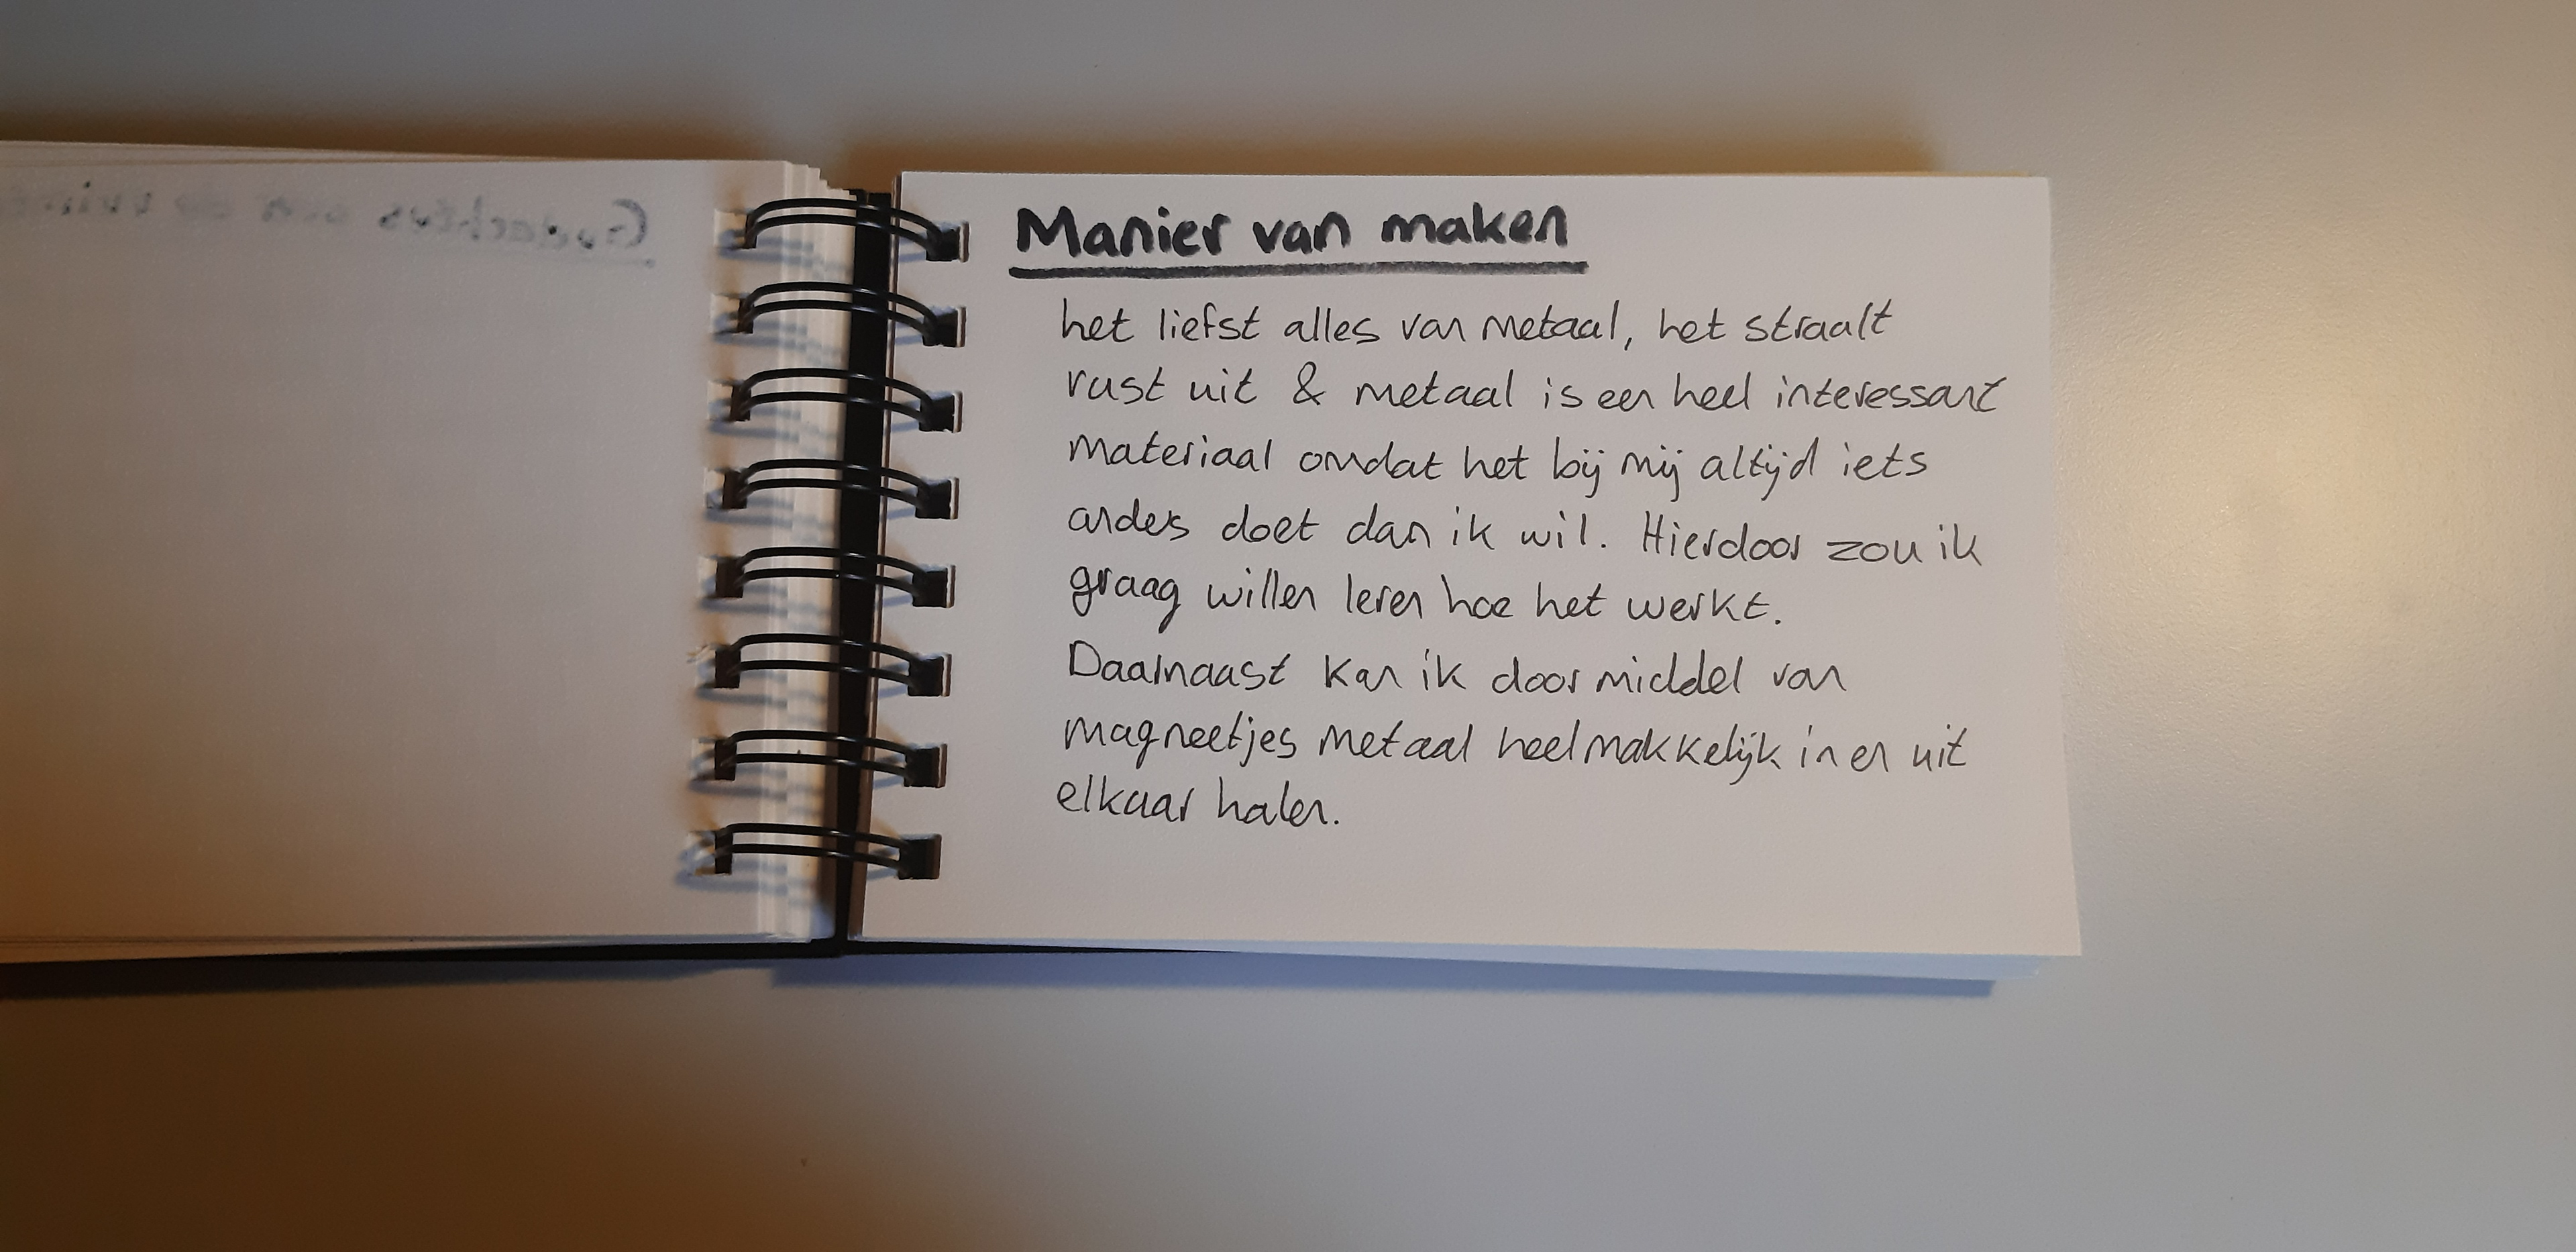 Manier van maken
het liefst alles van metaal, het straalt
rust uit & metaal is een heel interessant
materiaal omdat het bij mij altijd iets
anders doet dan ik wil. Hierdoor zou ik
graag willen leren hoe het werkt.
Daarnaast kan ik door middel van
magneetjes metaal heel makkelijk in en uit
elkaar halen.